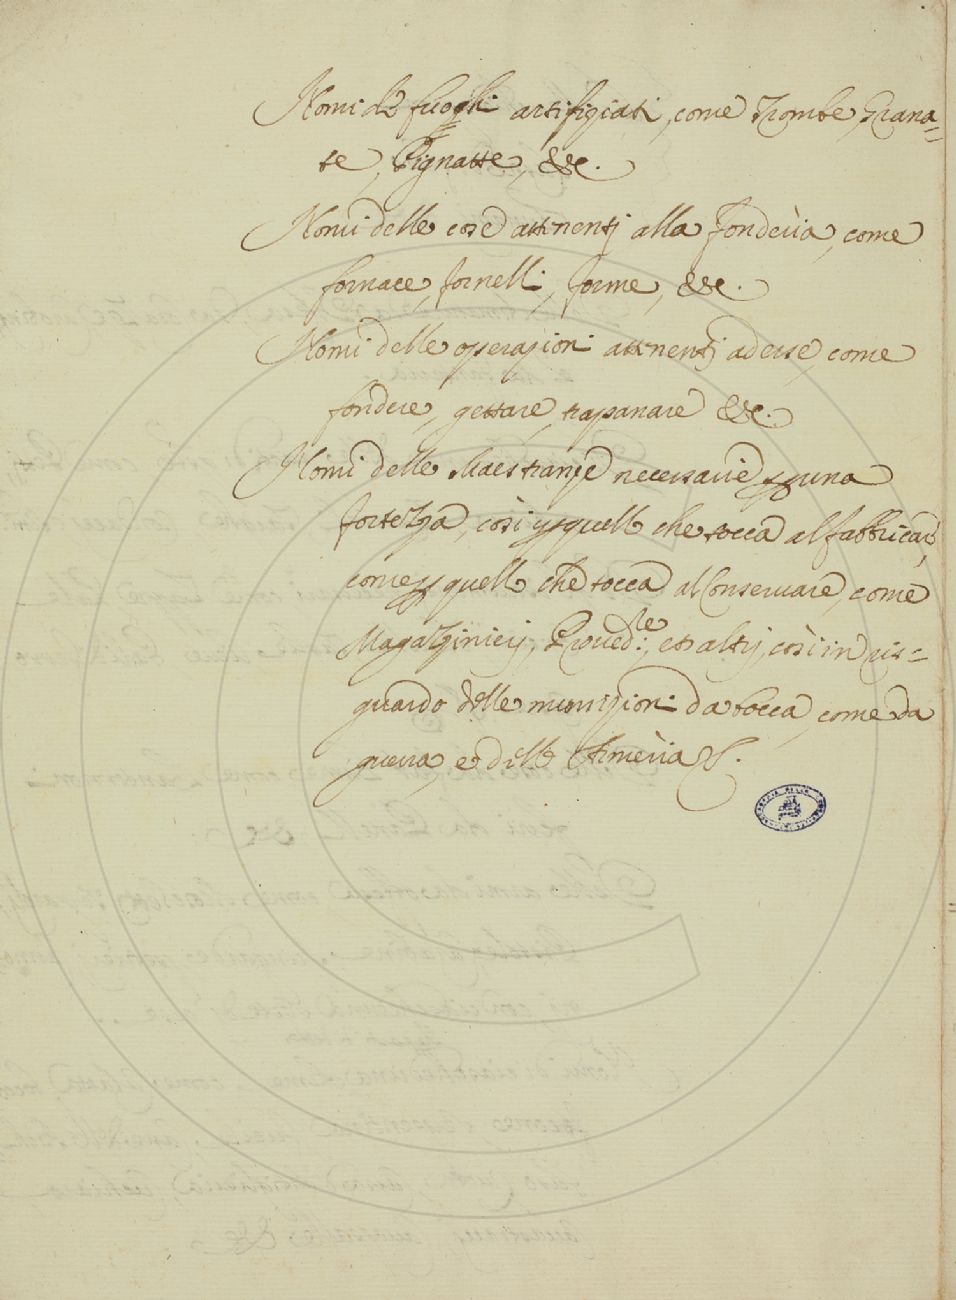 Nomi de fuoghi artifiziati, come Trombe, Grana=
te, Pignatte, &c.
Nomi delle cose attinenti alla fonderia, come
fornace, fornelli, forme, &c.
Nomi delle operazioni attinenti ad esse, come
fondere, gettare, trapanare &c.
Nomi delle Maestranze necessarie p una
fortezza, così p quello che tocca al fabbricare,
come p quello che tocca al Conservare, come
Magazzinieri, Proved.re, et altri, così in ris=
guardo delle munizioni da bocca, come da
guerra, e delle Armeria &.